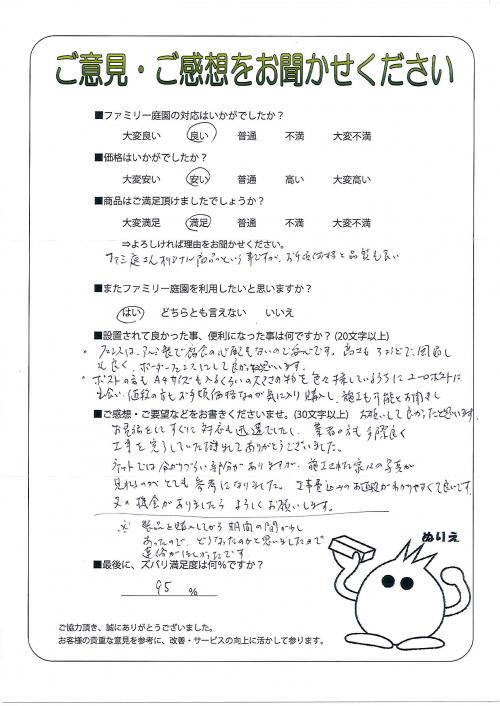 ご意見・ご感想をお聞かせください
■ファミリー庭園の対応はいかがでしたか？
大変良い 良い 普通 不満 大変不満
■価格はいかがでしたか？
大変安い 安い 普通 高い 大変高い
■商品はご満足頂けましたでしょうか？
大変満足 満足 普通 不満 大変不満
⇒よろしければ理由をお聞かせください。
ファミ庭さんオリジナル商品という事ですが、お手頃価格と品質も良い
■またファミリー庭園を利用したいと思いますか？
はい どちらとも言えない いいえ
■設置されて良かった事、便利になった事は何ですか？(20文字以上)
・フェンスは、アルミ製で腐食の心配もないので安心です。高さもちょうどで、風通し
も良く、ボーダーフェンスにして良かったと思います。
・ポストの方も A4サイズも入るくらいの大きさの物を色々探しているうちにユーロポストに
出会い、値段の方もお手頃価格なのが気に入り購入し、施工も可能とお聞きし
■ご感想・ご要望などをお書きくださいませ。(30文字以上) お願いして良かったと思います。
お電話をしてすぐに対応も迅速でしたし、業者の方も手際良く
工事を完了していただきましてありがとうございました。
ネットでは分かりづらい部分がありますが、施工された家の写真が
見れるのがとても参考になりました。工事費込みのお値段がわかりやすくて良いです。
又の機会がありましたらよろしくお願いします。
※ 製品を購入してから期間の間が少し
あったので、どうなったのかと思いましたので
連絡がほしかったです
■最後に、ズバリ満足度は何％ですか？
95 %
ぬりえ
ご協力頂き、誠にありがとうございました。
お客様の貴重な意見を参考に、改善・サービスの向上に活かして参ります。